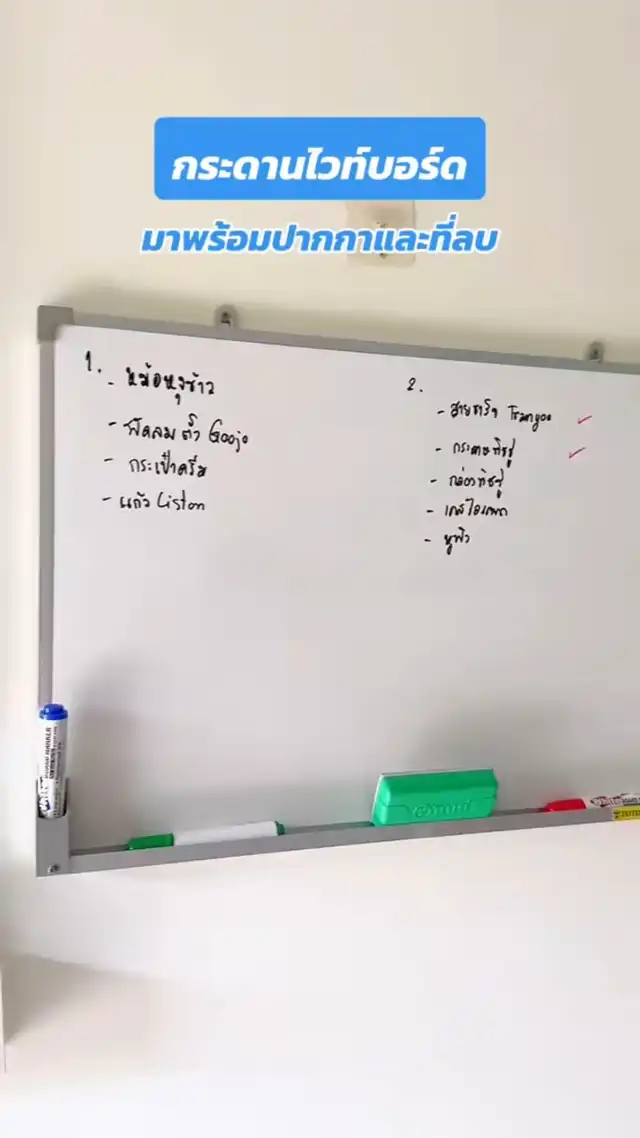 กระดานไวท์บอร์ด
มาพร้อมปากกาและที่ลบ
1.
- หม้อหุงข้าว
- พัดลมตั้ว Goojo
- กระเป๋าครีม
- แก้ว Liston
2.
- สายชาร์จ
- กระดาษทิชชู่
- กล่องทิชชู่
- เคสไอแพด
- หูฟัง